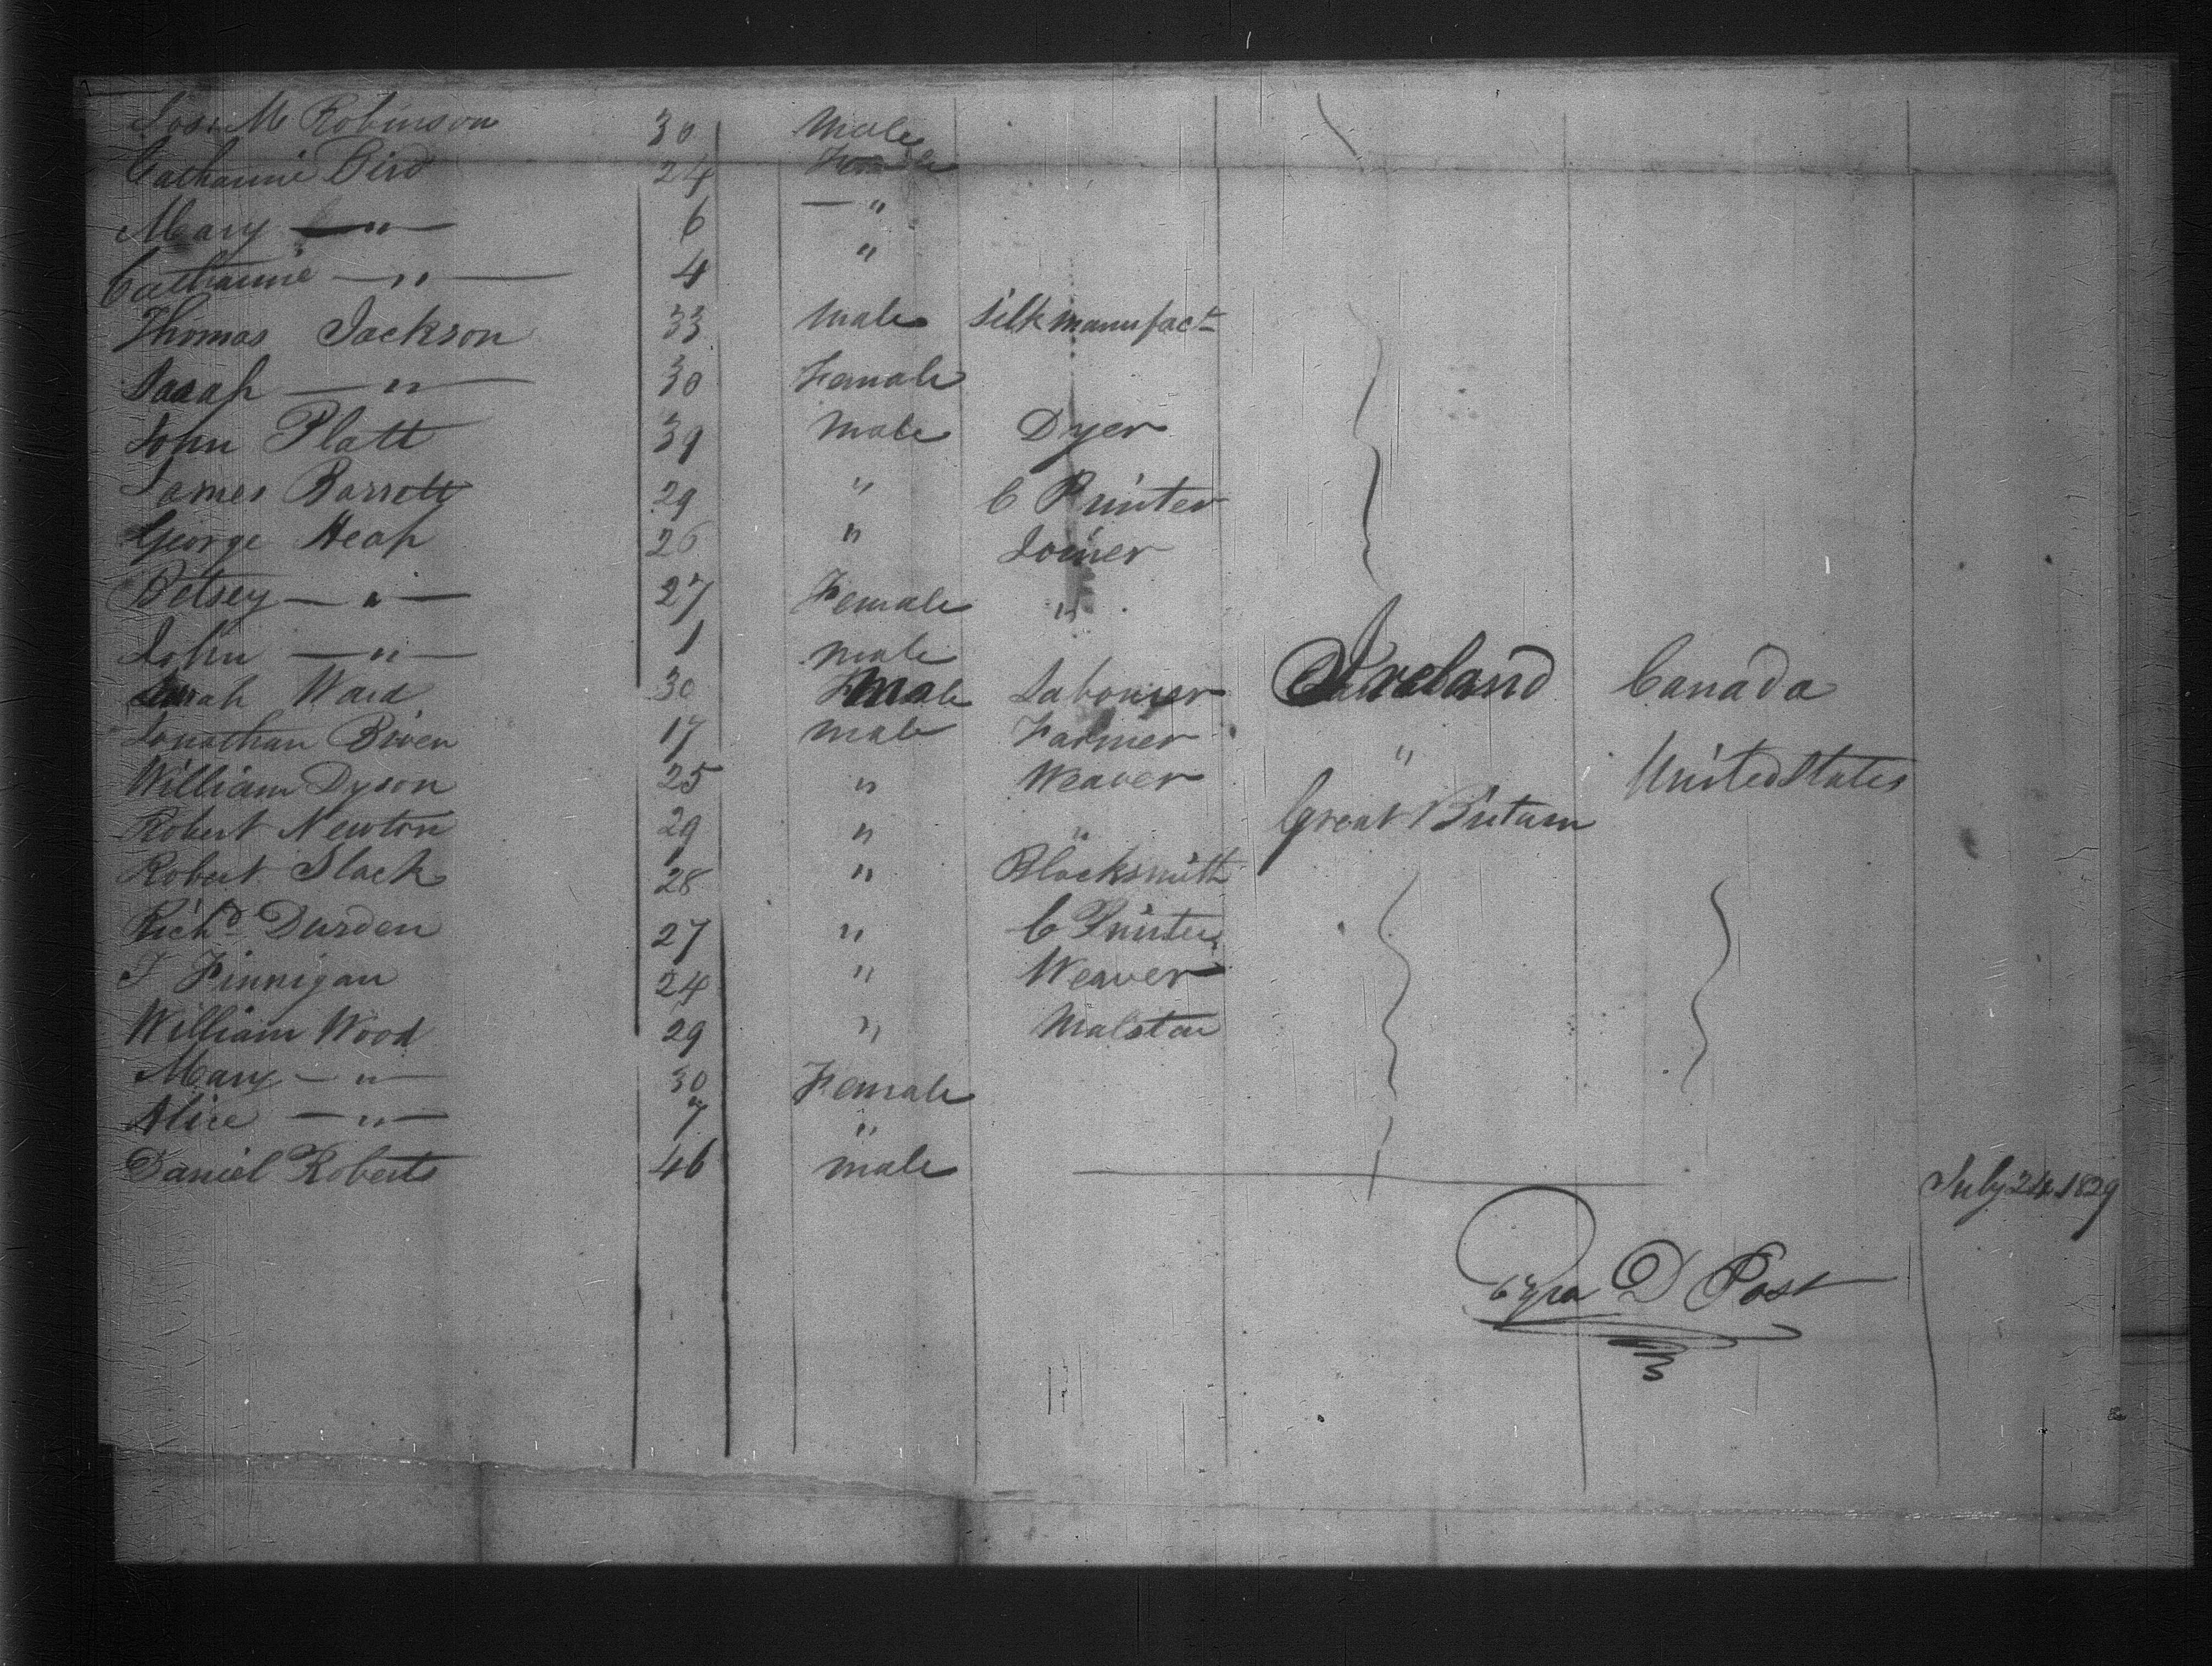 Jos. M Robinson 30 Male
Catharine Bird 24 Female
Mary — " — 6 — "
Catharine — " — 4 "
Thomas Jackson 33 Male Silk manufact
Sarah — " — 30 Female
John Platt 39 Male Dyer
James Barrett 29 " C Printer
George Heap 26 " Joiner
Betsey — " — 27 Female "
John — " — 1 male
Sarah Ward 30 Female Labourer Ireland Canada
Jonathan 17 male Farmer " United States
William Dyson 25 " Weaver Great Britain
Robert Newton 29 " "
Robert Slack 28 " Blacksmith
Richd Durden 27 " C Printer
T Finnigan 24 " Weaver
William Wood 29 "
Mary — " — 30 Female
Alice — " — 7 "
Daniel Roberts 46 male July 24 1829
Ezra D Post